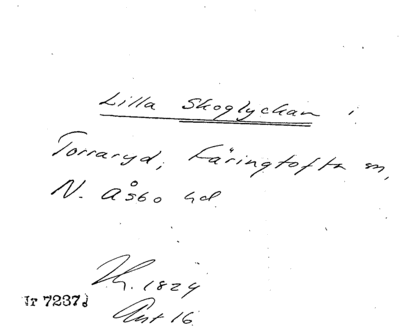 Lilla Skoglyckan i
Torraryd, Färingtofta sn,
N. Åsbo hd
Th. 1824
Ant 16
Nr 7237